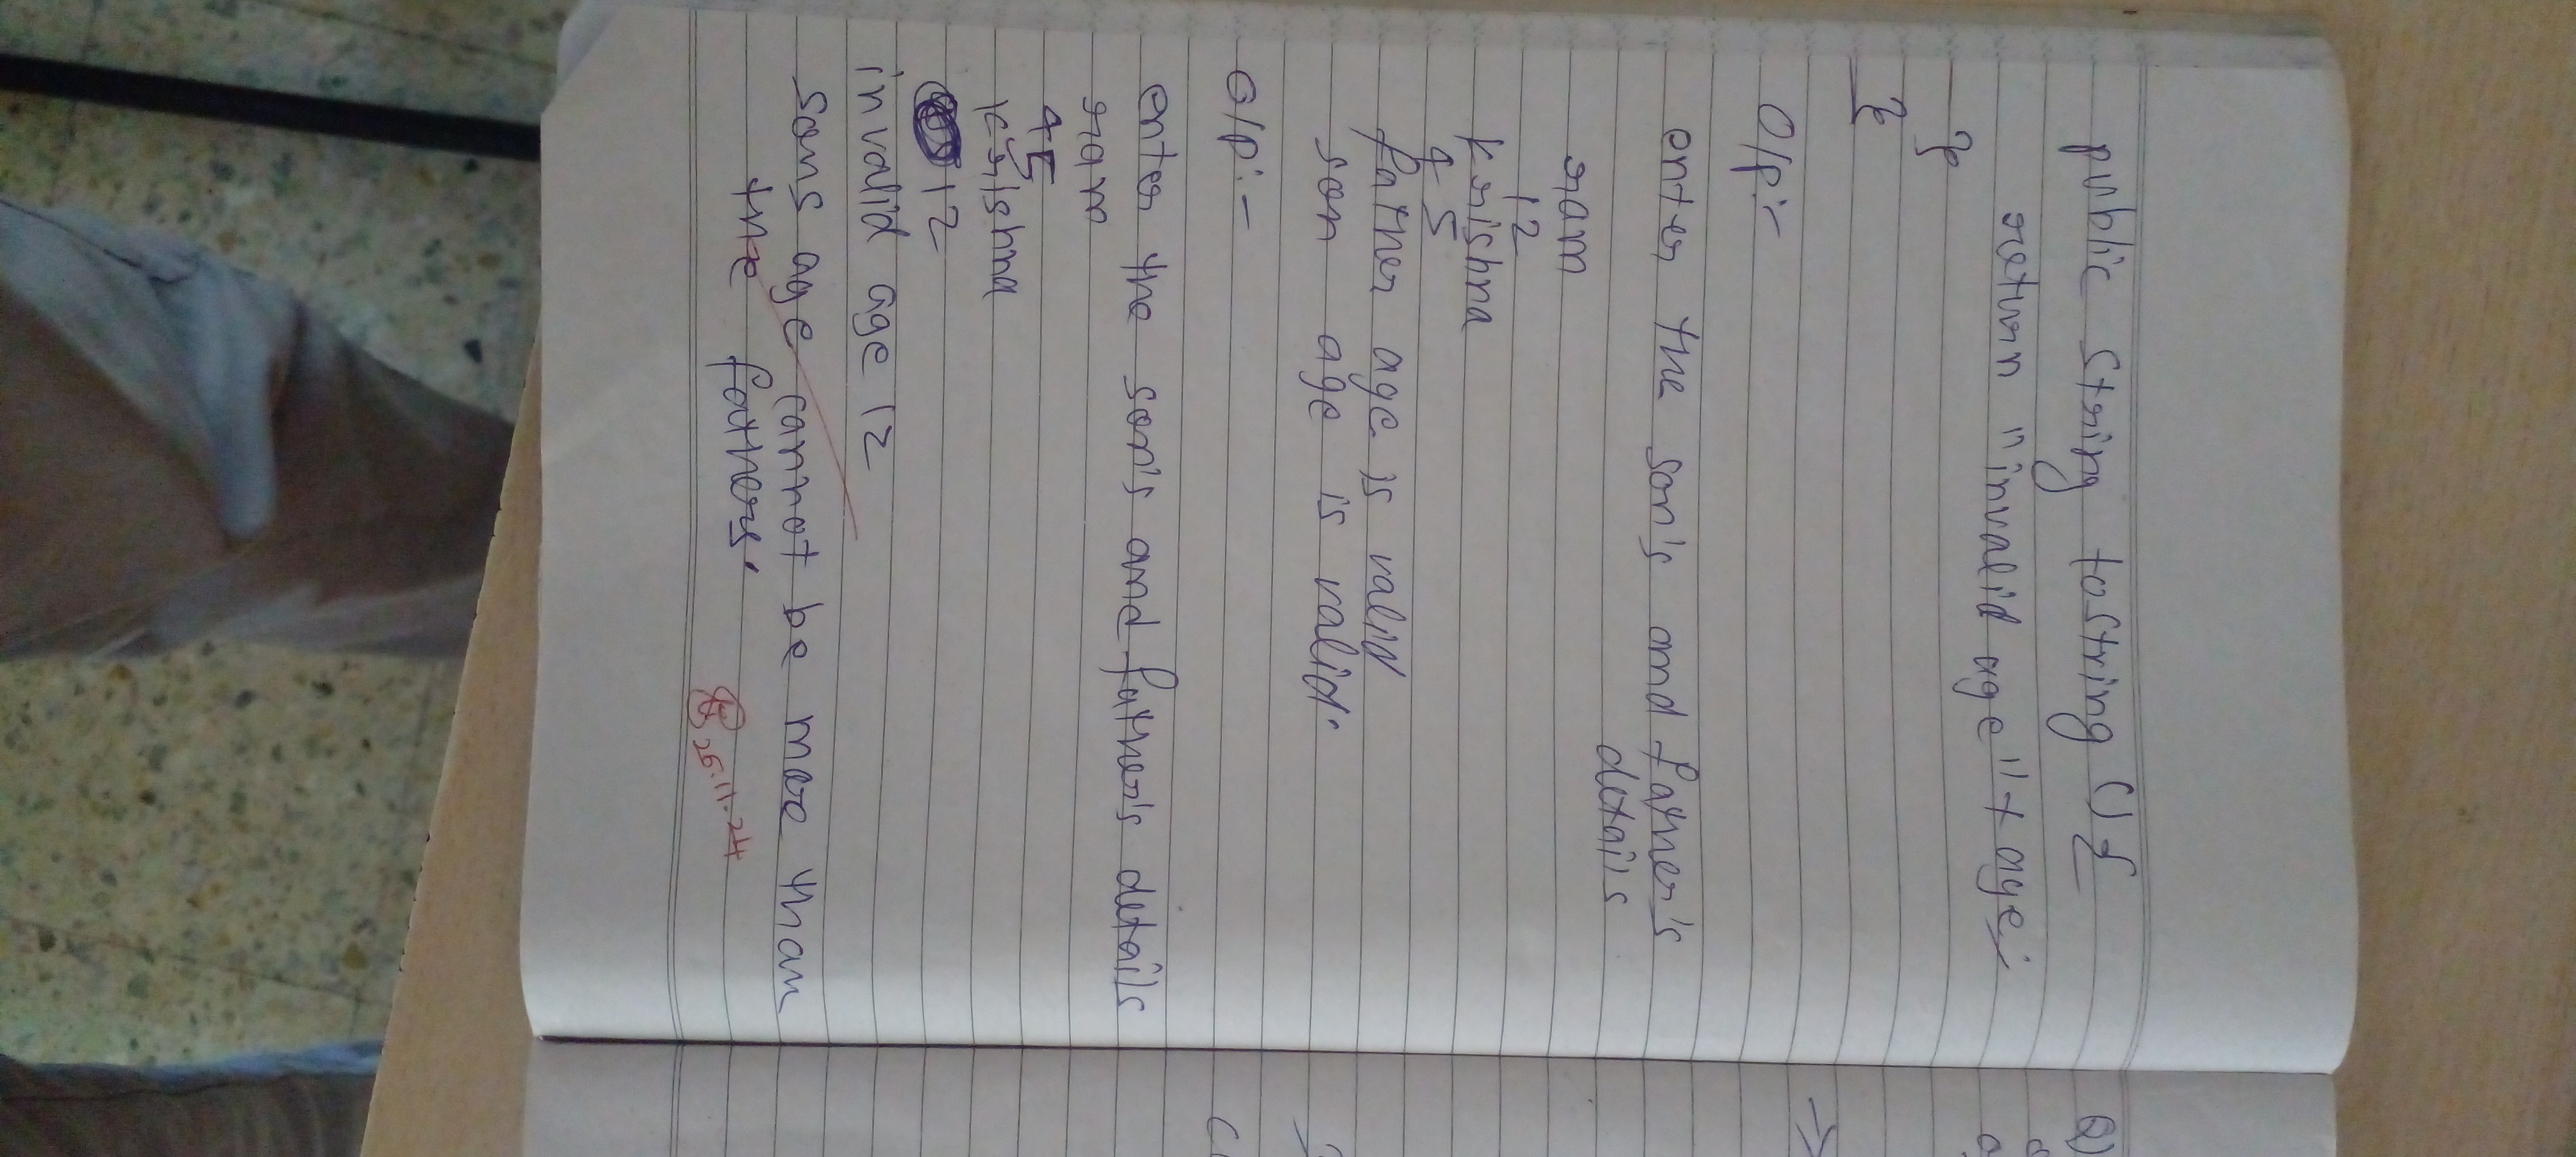 public String toString () {
return "invalid age" + age;
}
}
O/p:-
enter the son's and father's
details
ram
12
krishna
45
father age is valid
son age is valid.
O/p:-
enter the son's and father's details
ram
45
krishna
12
invalid age 12
sons age cannot be more than
the fathers.
25.11.24
Q)